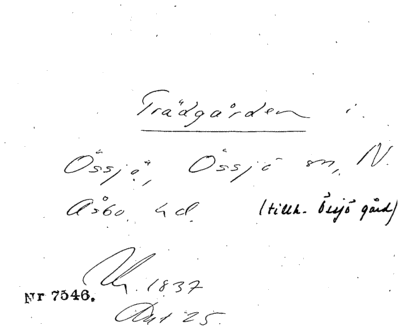 Trädgården i
Össjö, Össjö sn, N.
Åsbo hd. (tillh. Össjö gård)
1837
Nr 7546.
25.